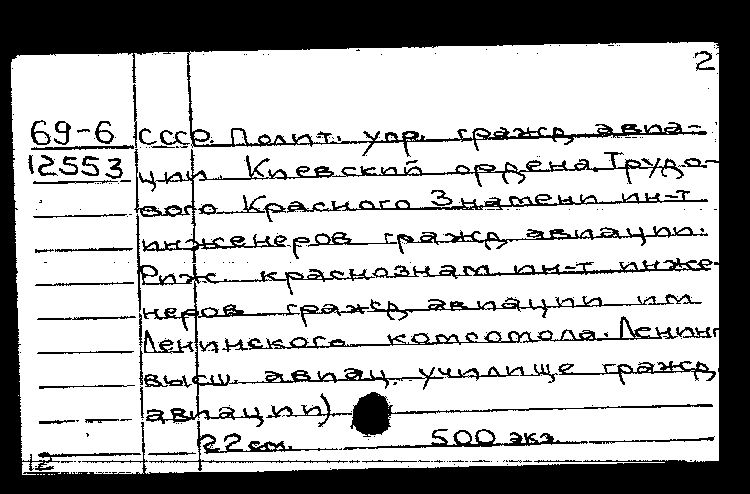 2
69-6 СССР. Полит. упр. гражд. авиа-
12553 ции. Киевский ордена Трудо-
вого Красного Знамени ин-т
инженеров гражд. авиации.
Риж. краснознам. ин-т инже-
неров гражд. авиации им.
Ленинского комсомола. Ленингр.
высш. авиац. училище гражд.
авиации)
22 см. 500 экз.
12